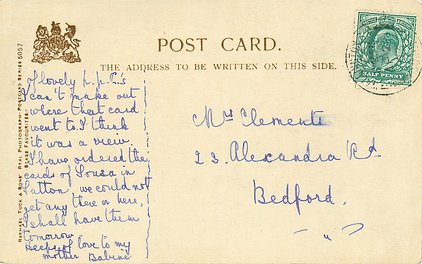 POST CARD.
THE ADDRESS TO BE WRITTEN ON THIS SIDE.
HALF PENNY
RAPHAEL TUCK & SONS' REAL PHOTOGRAPH POSTCARD SERIES 5057
STAGE FAVOURITES
of lovely p.p.c's
I can't make out
where that card
went to. I think
it was a view.
I have ordered the
cards of Sousa in
we could not
get any there or here,
I shall have them
tomorrow.
Heaps of love to my
mother
Mrs Clements
23. Alexandra Rd
Bedford.